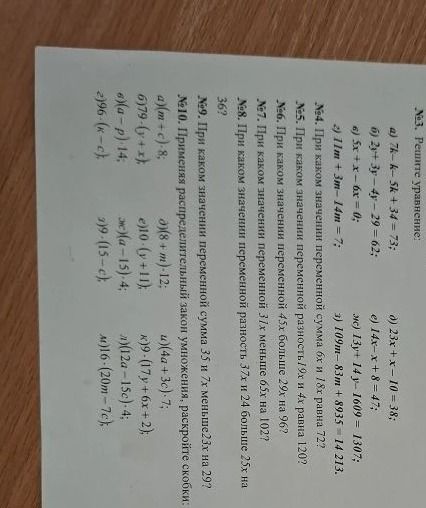 №3. Решите уравнение:
а) 7k- k- 5k + 34 = 73; д) 23x + x – 10 = 38;
б) 2y+ 3y - 4y – 29 = 62; е) 14x – x + 8 = 47;
в) 5x + x – 6x = 0; ж) 13y+ 14 y- 1009 = 1307;
г) 11m + 3m – 14m = 7; з) 109m - 83m + 8935 = 14 213.
№4. При каком значении переменной сумма 6x и 18x равна 72?
№5. При каком значении переменной разность19x и 4x равна 120?
№6. При каком значении переменной 45x больше 29x на 96?
№7. При каком значении переменной 31x меньше 65x на 102?
№8. При каком значении переменной разность 37x и 24 больше 25x на
36?
№9. При каком значении переменной сумма 35 и 7x меньше23x на 29?
№10. Применяя распределительный закон умножения, раскройте скобки:
а)(m + c)· 8; д)(8 + m)·12; и)(4a + 3c)·7;
б)79·(y + x); е)10·(y + 11); к)9·(17y + 6x + 2);
в)(a – p)·14; ж)(a – 15)·4; л)(12a – 15c)·4;
г)96·(к – c); з)9·(15 – c); м)16·(20m – 7c);